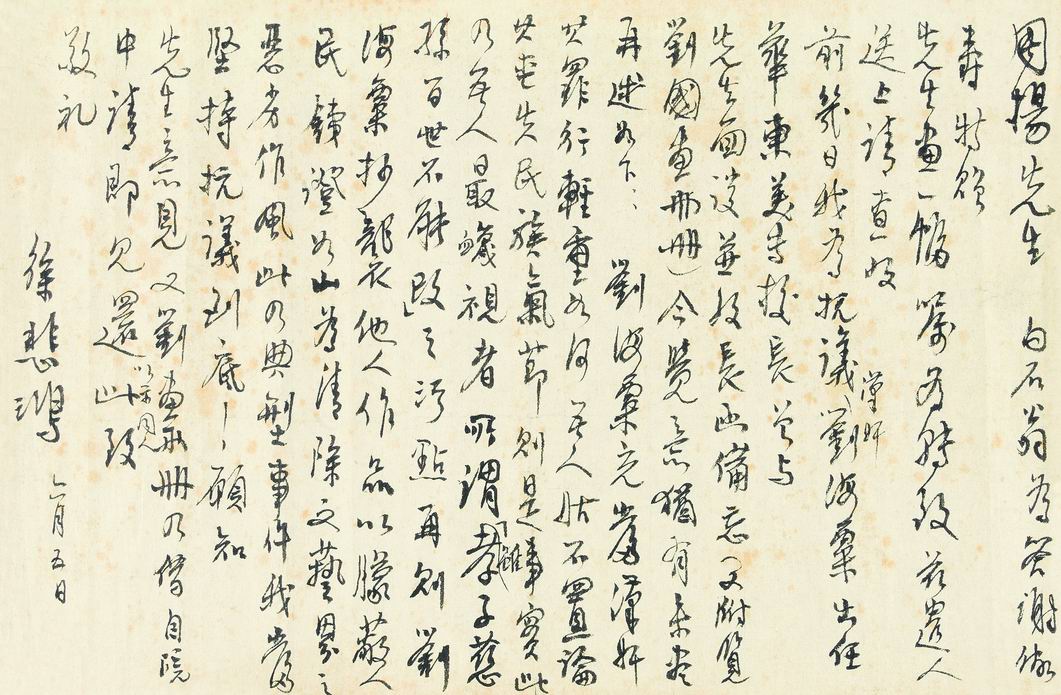 周揚先生 白石翁為答謝做
壽特繪
先生畫一幅囑為轉致茲遣人
送上請查收
前幾日我為抗議漢奸劉海粟出任
華東美專校長曾与
先生面談並致長函備忘(又附覽
劉國畫冊一冊)今覺意猶有未盡
再述如下: 劉海粟充當漢奸
其罪行輕重如何吾人姑不置論
其喪失民族氣節則是事實此
乃吾人最蔑視者所謂「雖孝子慈
孫百世不能改」之污點再則劉
海粟抄襲他人作品以矇蔽人
民鐵證如山為清除文藝界之
惡劣作風此乃典型事件我當
堅持抗議到底! 願知
先生意見又劉畫冊乃借自院
中請即見還此致
敬礼
徐悲鴻 六月五日